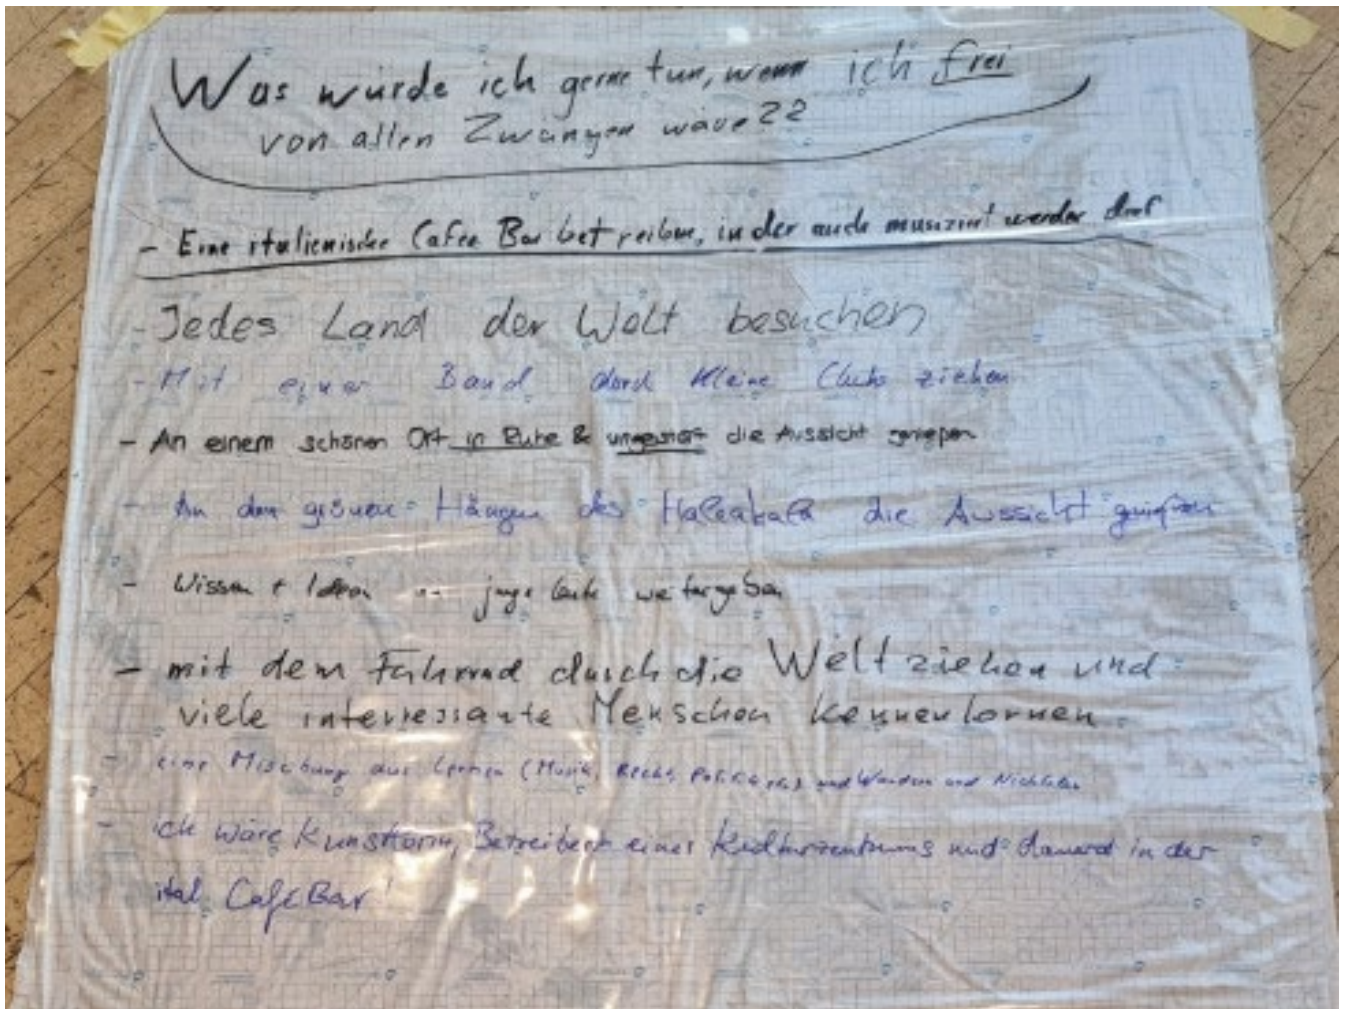 Was würde ich gerne tun, wenn ich frei
von allen Zwängen wäre??
- Eine italienische Cafee Bar betreiben, in der auch musiziert werden darf
- Jedes Land der Welt besuchen
- Mit einer Band durch kleine Clubs ziehen
- An einem schönen Ort in Ruhe & ungestört die Aussicht genießen
- An den grünen Hängen des Haleakala die Aussicht genießen
- Wissen + Ideen an junge Leute weitergeben
- mit dem Fahrrad durch die Welt ziehen und
viele interressante Menschen kennenlernen.
- eine Mischung aus Lernen (Musik, Recht, Politik) und Wandern und Nichtstun
- ich wäre Künstlerin, Betreiberin eines Kulturzentrums und dauernd in der
ital. Café Bar!